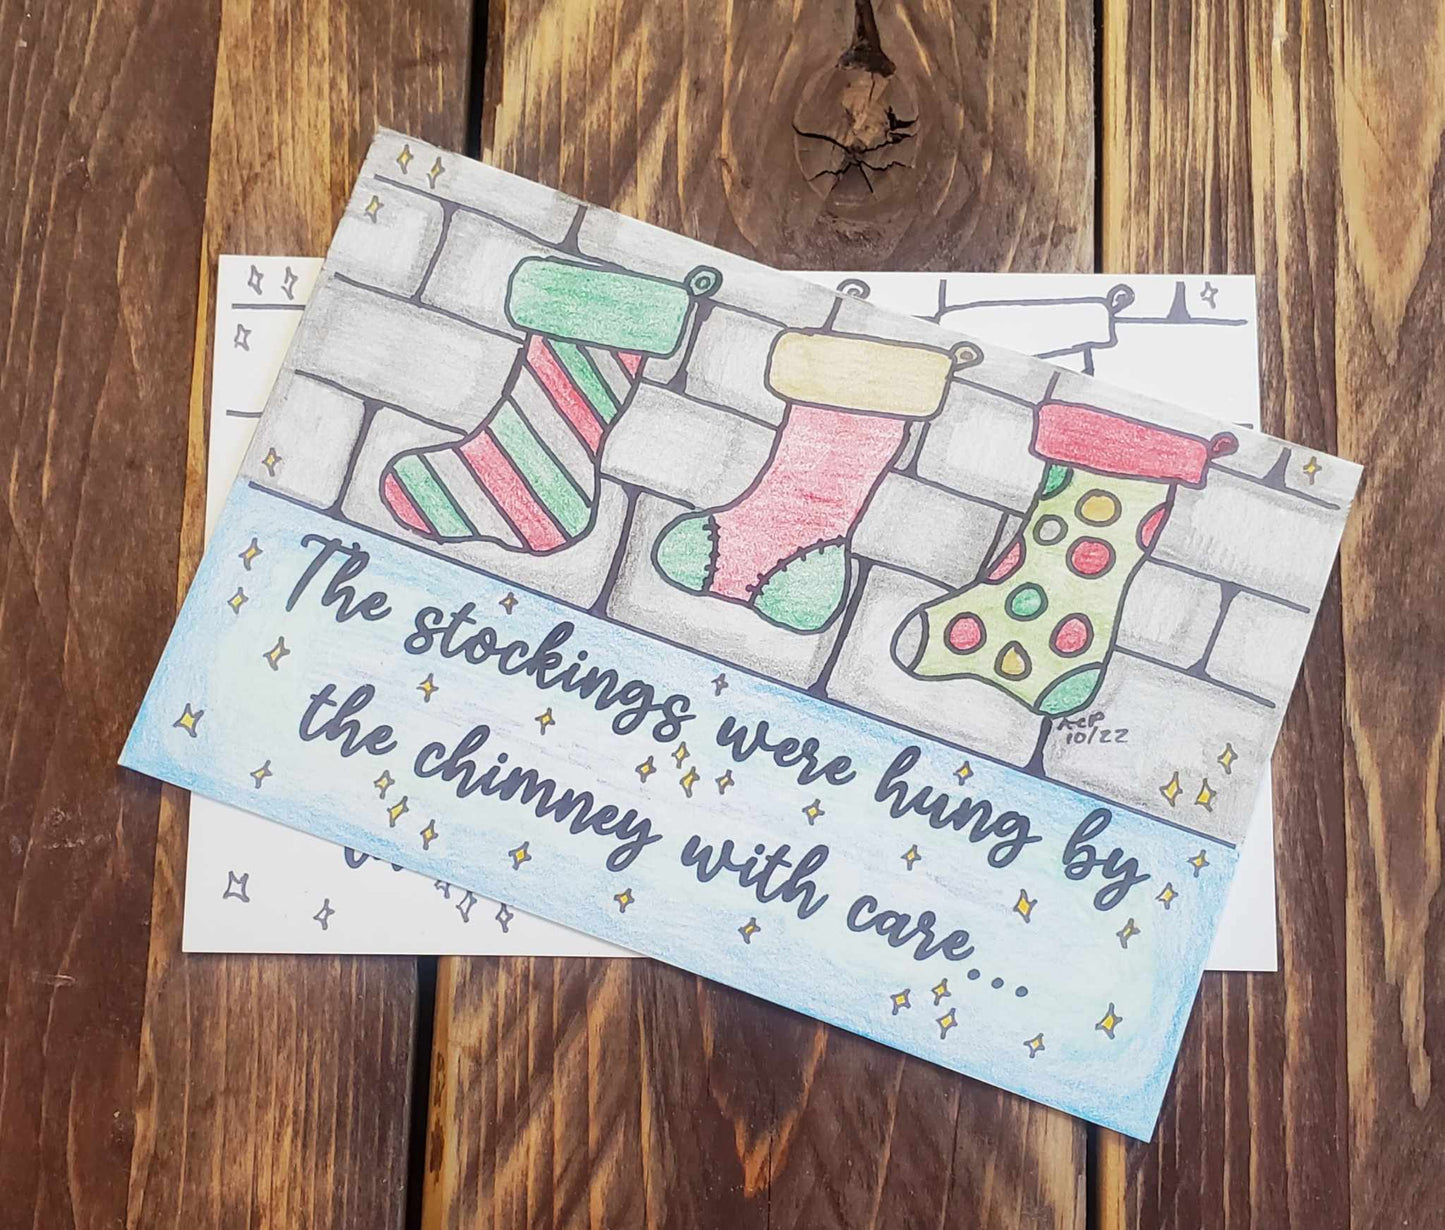 The stockings were hung by
the chimney with care...
ACP
10/22